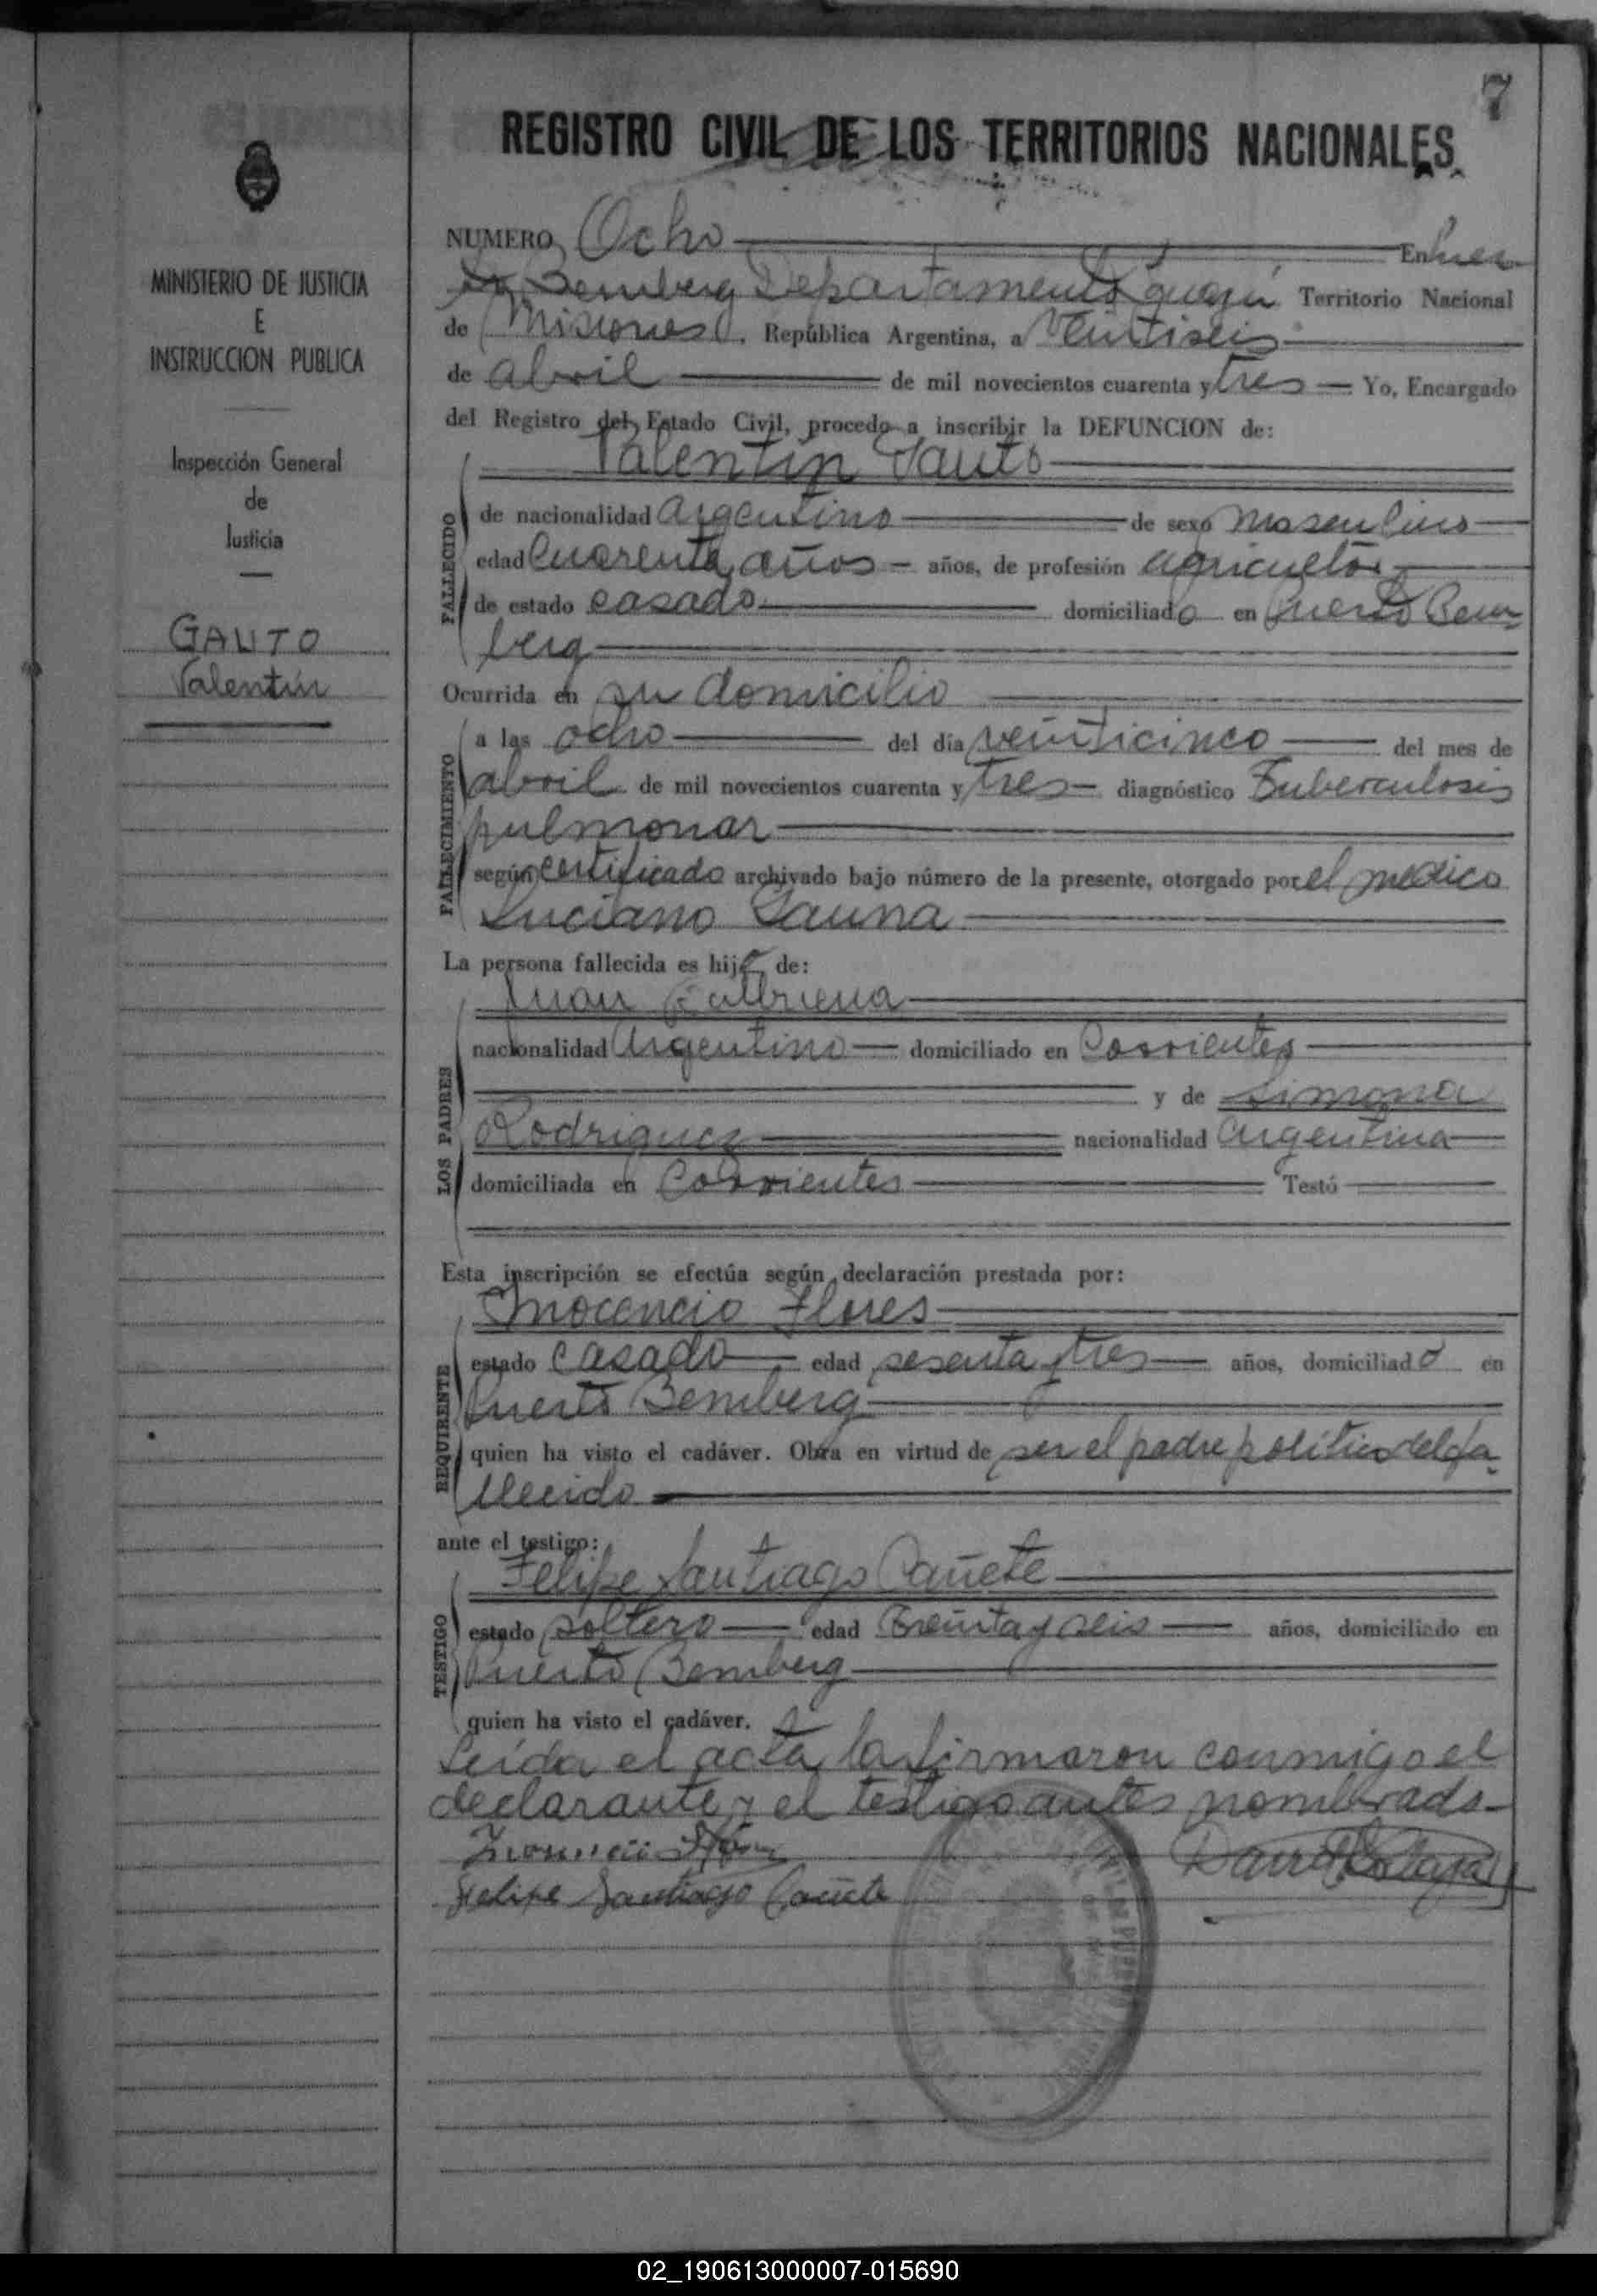 7
REGISTRO CIVIL DE LOS TERRITORIOS NACIONALES
MINISTERIO DE JUSTICIA
E
INSTRUCCION PUBLICA
Inspección General
de
Justicia
GAUTO
Valentín
NUMERO Ocho En Puer
to Bemberg Departamento Iguazú Territorio Nacional
de Misiones, República Argentina, a Veintiseis
de abril de mil novecientos cuarenta y tres Yo, Encargado
del Registro del Estado Civil, procedo a inscribir la DEFUNCION de:
Valentín Gauto
FALLECIDO
de nacionalidad argentino de sexo masculino
edad Cuarenta años años, de profesión agricultor
de estado casado domiciliado en Puerto Bem
berg
Ocurrida en su domicilio
FALLECIMIENTO
a las ocho del día veinticinco del mes de
abril de mil novecientos cuarenta y tres diagnóstico Tuberculosis
pulmonar
según certificado archivado bajo número de la presente, otorgado por el medico
Luciano
La persona fallecida es hijo de:
LOS PADRES
Juan
nacionalidad Argentino domiciliado en Corrientes
y de Simona
Rodriguez nacionalidad argentina
domiciliada en Corrientes Testó
Esta inscripción se efectúa según declaración prestada por:
REQUIRENTE
Inocencio Flores
estado casado edad sesenta y tres años, domiciliado en
Puerto Bemberg
quien ha visto el cadáver. Obra en virtud de ser el padre politico del fa-
llecido
ante el testigo:
TESTIGO
Felipe Santiago Cañete
estado soltero edad Treinta y seis años, domiciliado en
Puerto Bemberg
quien ha visto el cadáver.
Leida el acta la firmaron conmigo el
declarante y el testigo antes nombrado
Felipe Santiago Cañete
02_190613000007-015690